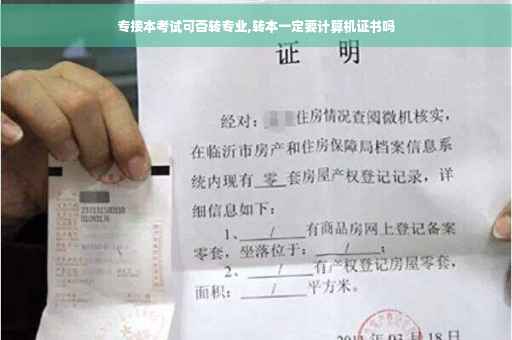 专接本考试可否转专业,转本一定要计算机证书吗
证 明
经对：住房情况查阅微机核实，
在临沂市房产和住房保障局档案信息系
统内现有 零 套房屋产权登记记录，详
细信息如下：
1、 / 有商品房网上登记备案
零套，坐落位于： / ；
2、 / 有产权登记房屋零套，
面积： / 平方米。
月 18 日